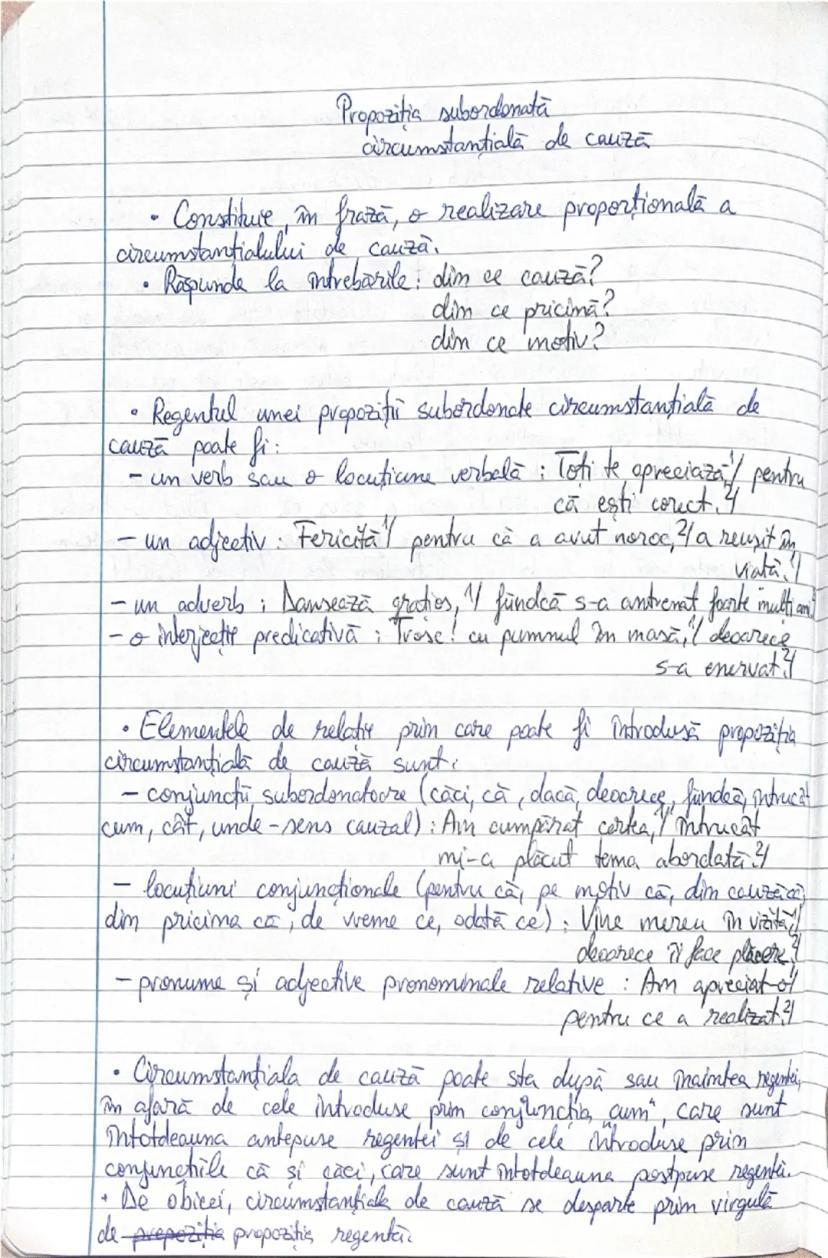 Propoziția subordonată
circumstanțială de cauză
• Constituie, în frază, o realizare proporțională a
circumstanțialului de cauză.
• Răspunde la întrebările: din ce cauză?
din ce pricină?
din ce motiv?
• Regentul unei propoziții subordonate circumstanțială de
cauză poate fi:
- un verb sau o locuțiune verbală : Toți te apreciază,1/ pentru
că ești corect.2/
- un adjectiv : Fericită1/ pentru că a avut noroc,2/ a reușit în
viață.1/
- un adverb : Dansează grațios,1/ fiindcă s-a antrenat foarte mulți ani.2/
- o interjecție predicativă : Trosc! cu pumnul în masă,1/ deoarece
s-a enervat.2/
• Elementele de relație prin care poate fi introdusă propoziția
circumstanțială de cauză sunt:
- conjuncții subordonatoare (căci, că, dacă, deoarece, fiindcă, întrucât
cum, cât, unde - sens cauzal) : Am cumpărat cartea,1/ întrucât
mi-a plăcut tema abordată.2/
- locuțiuni conjuncționale (pentru că, pe motiv că, din cauză că,
din pricina că, de vreme ce, odată ce) : Vine mereu în vizită,1/
deoarece îi face plăcere.2/
- pronume și adjective pronominale relative : Am apreciat-o1/
pentru ce a realizat.2/
• Circumstanțiala de cauză poate sta după sau înaintea regentei,
în afară de cele introduse prim conjuncția „cum", care sunt
întotdeauna antepuse regentei și de cele introduse prin
conjuncțiile că și căci, care sunt întotdeauna postpuse regentei.
• De obicei, circumstanțiala de cauză se desparte prin virgulă
de prepoziția propoziția regentă.